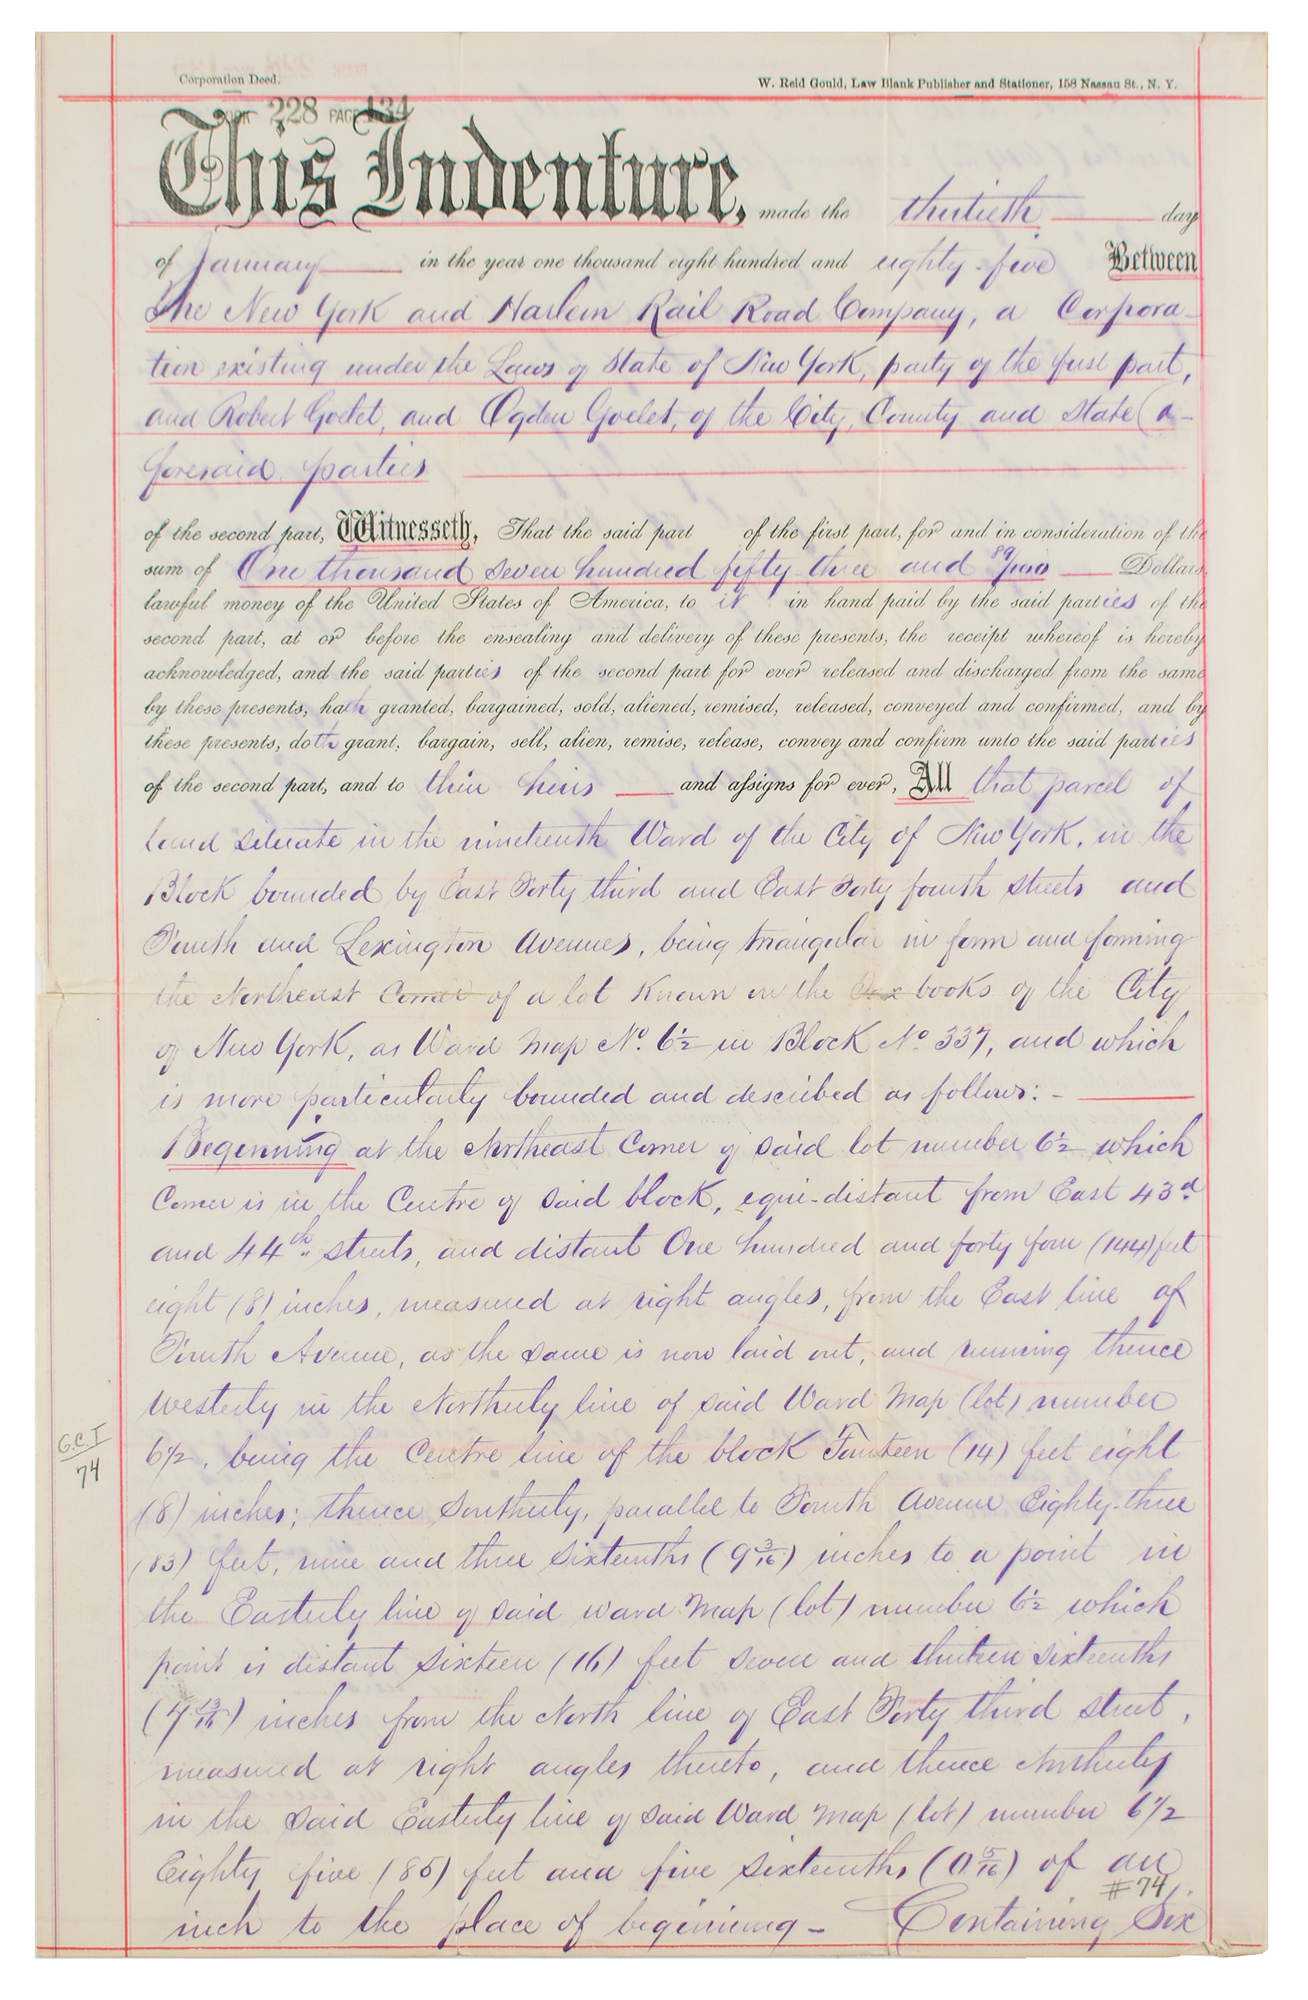 Corporation Deed.
W. Reid Gould, Law Blank Publisher and Stationer, 158 Nassau St., N. Y.
BOOK 228 PAGE 134
This Indenture, made the thirtieth day
of January in the year one thousand eight hundred and eighty-five Between
The New York and Harlem Rail Road Company, a Corpora-
tion existing under the Laws of State of New York, party of the first part,
and Robert Goelet, and Ogden Goelet, of the City, County and State (a-
foresaid parties
of the second part, Witnesseth, That the said part of the first part, for and in consideration of the
sum of One thousand seven hundred fifty three and 89/100 Dollars
lawful money of the United States of America, to it in hand paid by the said parties of the
second part, at or before the ensealing and delivery of these presents, the receipt whereof is hereby
acknowledged, and the said parties of the second part for ever released and discharged from the same
by these presents, hath granted, bargained, sold, aliened, remised, released, conveyed and confirmed, and by
these presents, doth grant, bargain, sell, alien, remise, release, convey and confirm unto the said parties
of the second part, and to their heirs and assigns for ever, All that parcel of
land situate in the nineteenth Ward of the City of New York, in the
Block bounded by East Forty third and East Forty fourth streets and
Fourth and Lexington Avenues, being triangular in form and forming
the Northeast Corner of a lot known on the tax books of the City
of New York, as Ward Map No. 6½ in Block No 337, and which
is more particularly bounded and described as follows: -
Beginning at the Northeast Corner of said lot number 6½ which
Corner is in the Centre of said block, equi-distant from East 43d
and 44th streets, and distant One hundred and forty four (144) feet
eight (8) inches, measured at right angles, from the East line of
Fourth Avenue, as the same is now laid out, and running thence
westerly in the Northerly line of said Ward Map (lot) number
6½, being the Centre line of the block Fourteen (14) feet eight
(8) inches; thence Southerly, parallel to Fourth Avenue Eighty-three
(83) feet, nine and three sixteenths (9 3/16) inches to a point in
the Easterly line of said ward Map (lot) number 6½ which
point is distant sixteen (16) feet seven and thirteen sixteenths
(7 13/16) inches from the North line of East Forty third street,
measured at right angles thereto, and thence Northerly
in the said Easterly line of said Ward Map (lot) number 6½
Eighty five (85) feet and five sixteenths (0 5/16) of an
inch to the place of beginning - Containing Six
#74
G.C.T
74